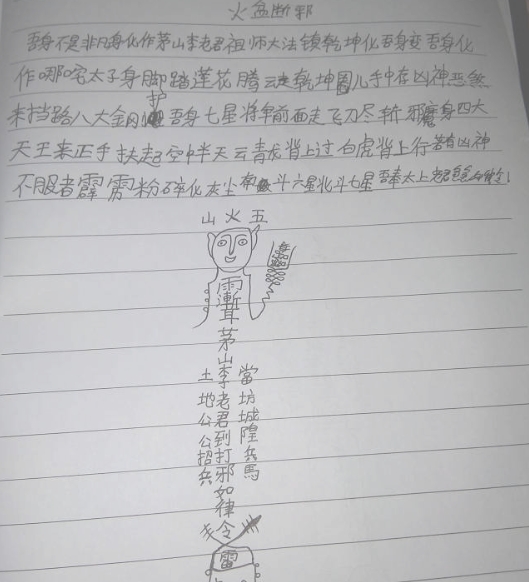 火盆断邪
吾身不是非凡身化作茅山李老君祖师大法镇乾坤化吾身变吾身化
作哪吒太子身脚踏莲花腾云走乾坤圈儿手中在凶神恶煞
来挡路八大金刚护吾身七星将军前面走飞刀尽斩邪魔身四大
天王来正手扶起空中半天云青龙背上过白虎背上行若有凶神
不服者霹雳粉碎化灰尘南斗六星北斗七星吾奉太上老君
山火五
雷
漸
耳
茅山李老君到打邪如律令
當坊城隍兵馬
土地公公招兵
雷